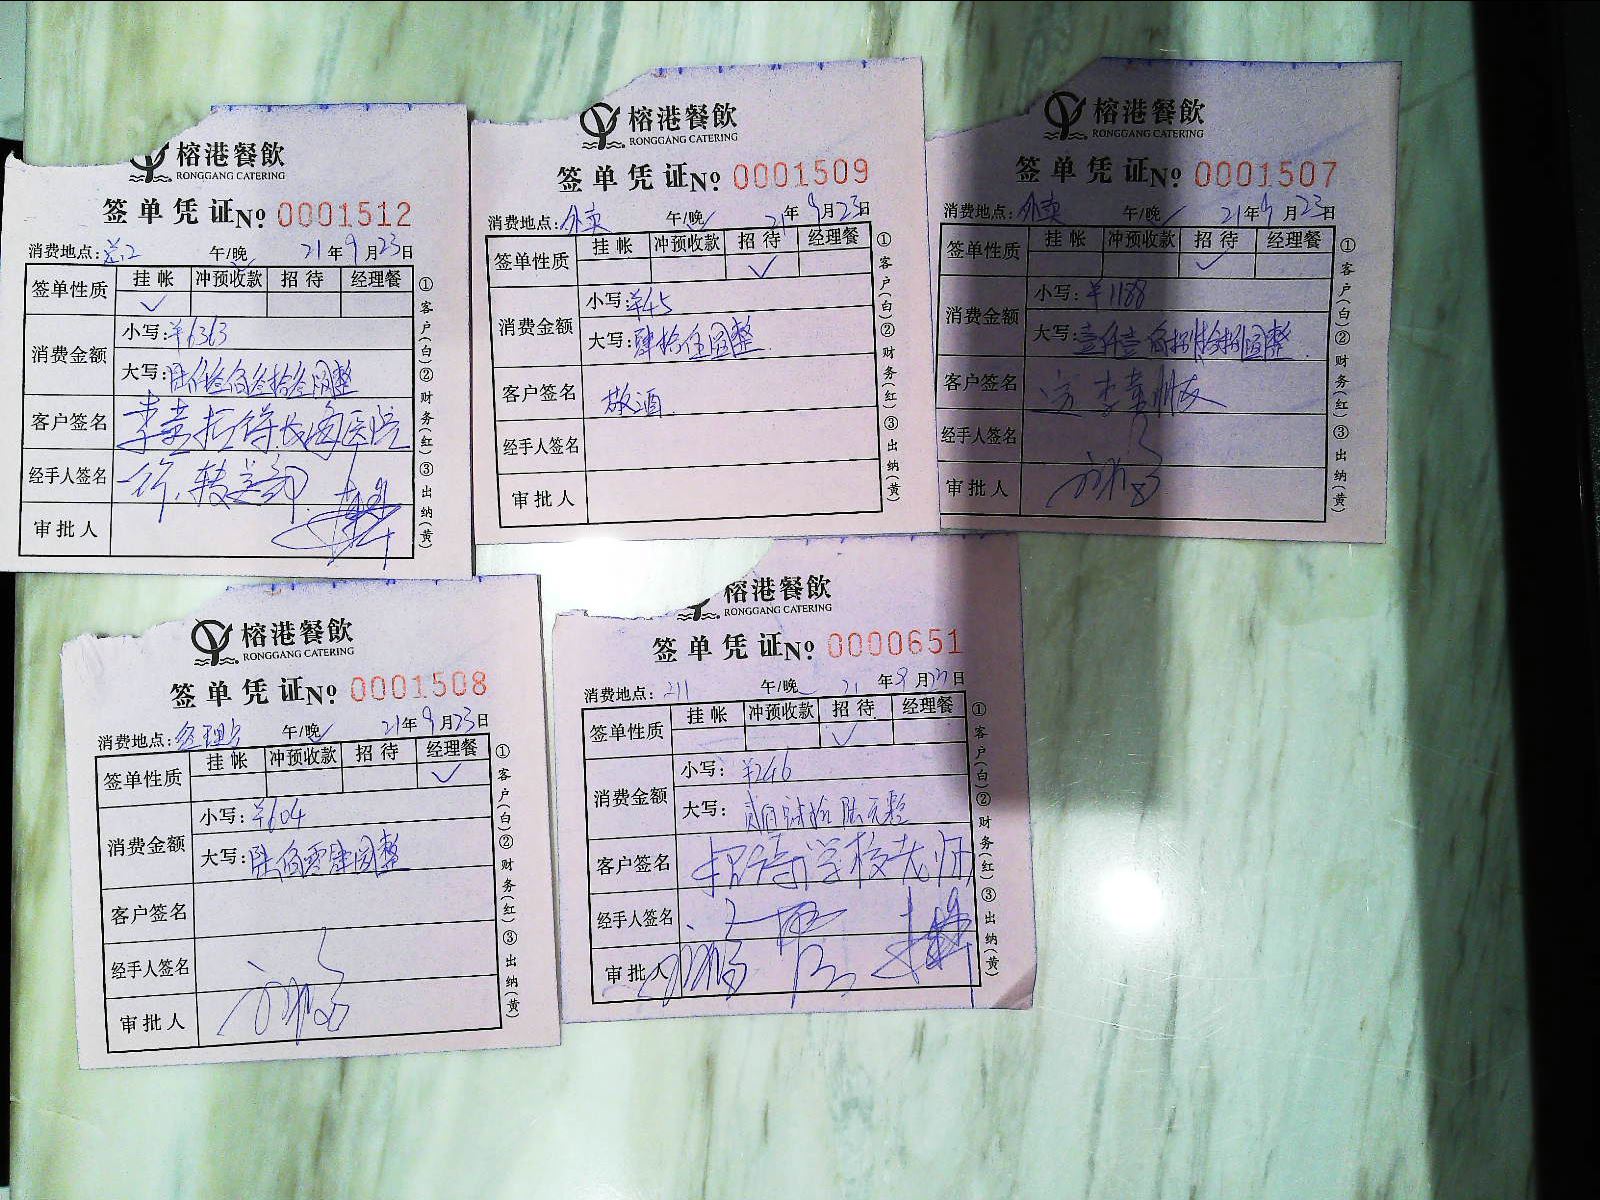 榕港餐飲
RONGGANG CATERING
签单凭证 No 0001512
消费地点: 午/晚 21年9月23日
签单性质 挂帐 冲预收款 招待 经理餐
✓
消费金额 小写:¥6363
大写:陆仟叁佰叁拾叁圆整
客户签名
经手人签名
审批人
①客户(白)②财务(红)③出纳(黄)
榕港餐飲
RONGGANG CATERING
签单凭证 No 0001509
消费地点:外卖 午/晚✓ 21年9月23日
签单性质 挂帐 冲预收款 招待 经理餐
✓
消费金额 小写:¥45
大写:肆拾伍圆整
客户签名 敬酒
经手人签名
审批人
①客户(白)②财务(红)③出纳(黄)
榕港餐飲
RONGGANG CATERING
签单凭证 No 0001507
消费地点:外卖 午/晚✓ 21年9月23日
签单性质 挂帐 冲预收款 招待 经理餐
✓
消费金额 小写:¥1188
大写:壹仟壹佰捌拾捌圆整
客户签名
经手人签名
审批人
①客户(白)②财务(红)③出纳(黄)
榕港餐飲
RONGGANG CATERING
签单凭证 No 0001508
消费地点: 午/晚✓ 21年9月23日
签单性质 挂帐 冲预收款 招待 经理餐
✓
消费金额 小写:¥604
大写:陆佰零肆圆整
客户签名
经手人签名
审批人
①客户(白)②财务(红)③出纳(黄)
榕港餐飲
RONGGANG CATERING
签单凭证 No 0000651
消费地点:211 午/晚 21年9月23日
签单性质 挂帐 冲预收款 招待 经理餐
✓
消费金额 小写:¥246
大写:贰佰肆拾陆元整
客户签名 招待学校老师
经手人签名
审批人
①客户(白)②财务(红)③出纳(黄)